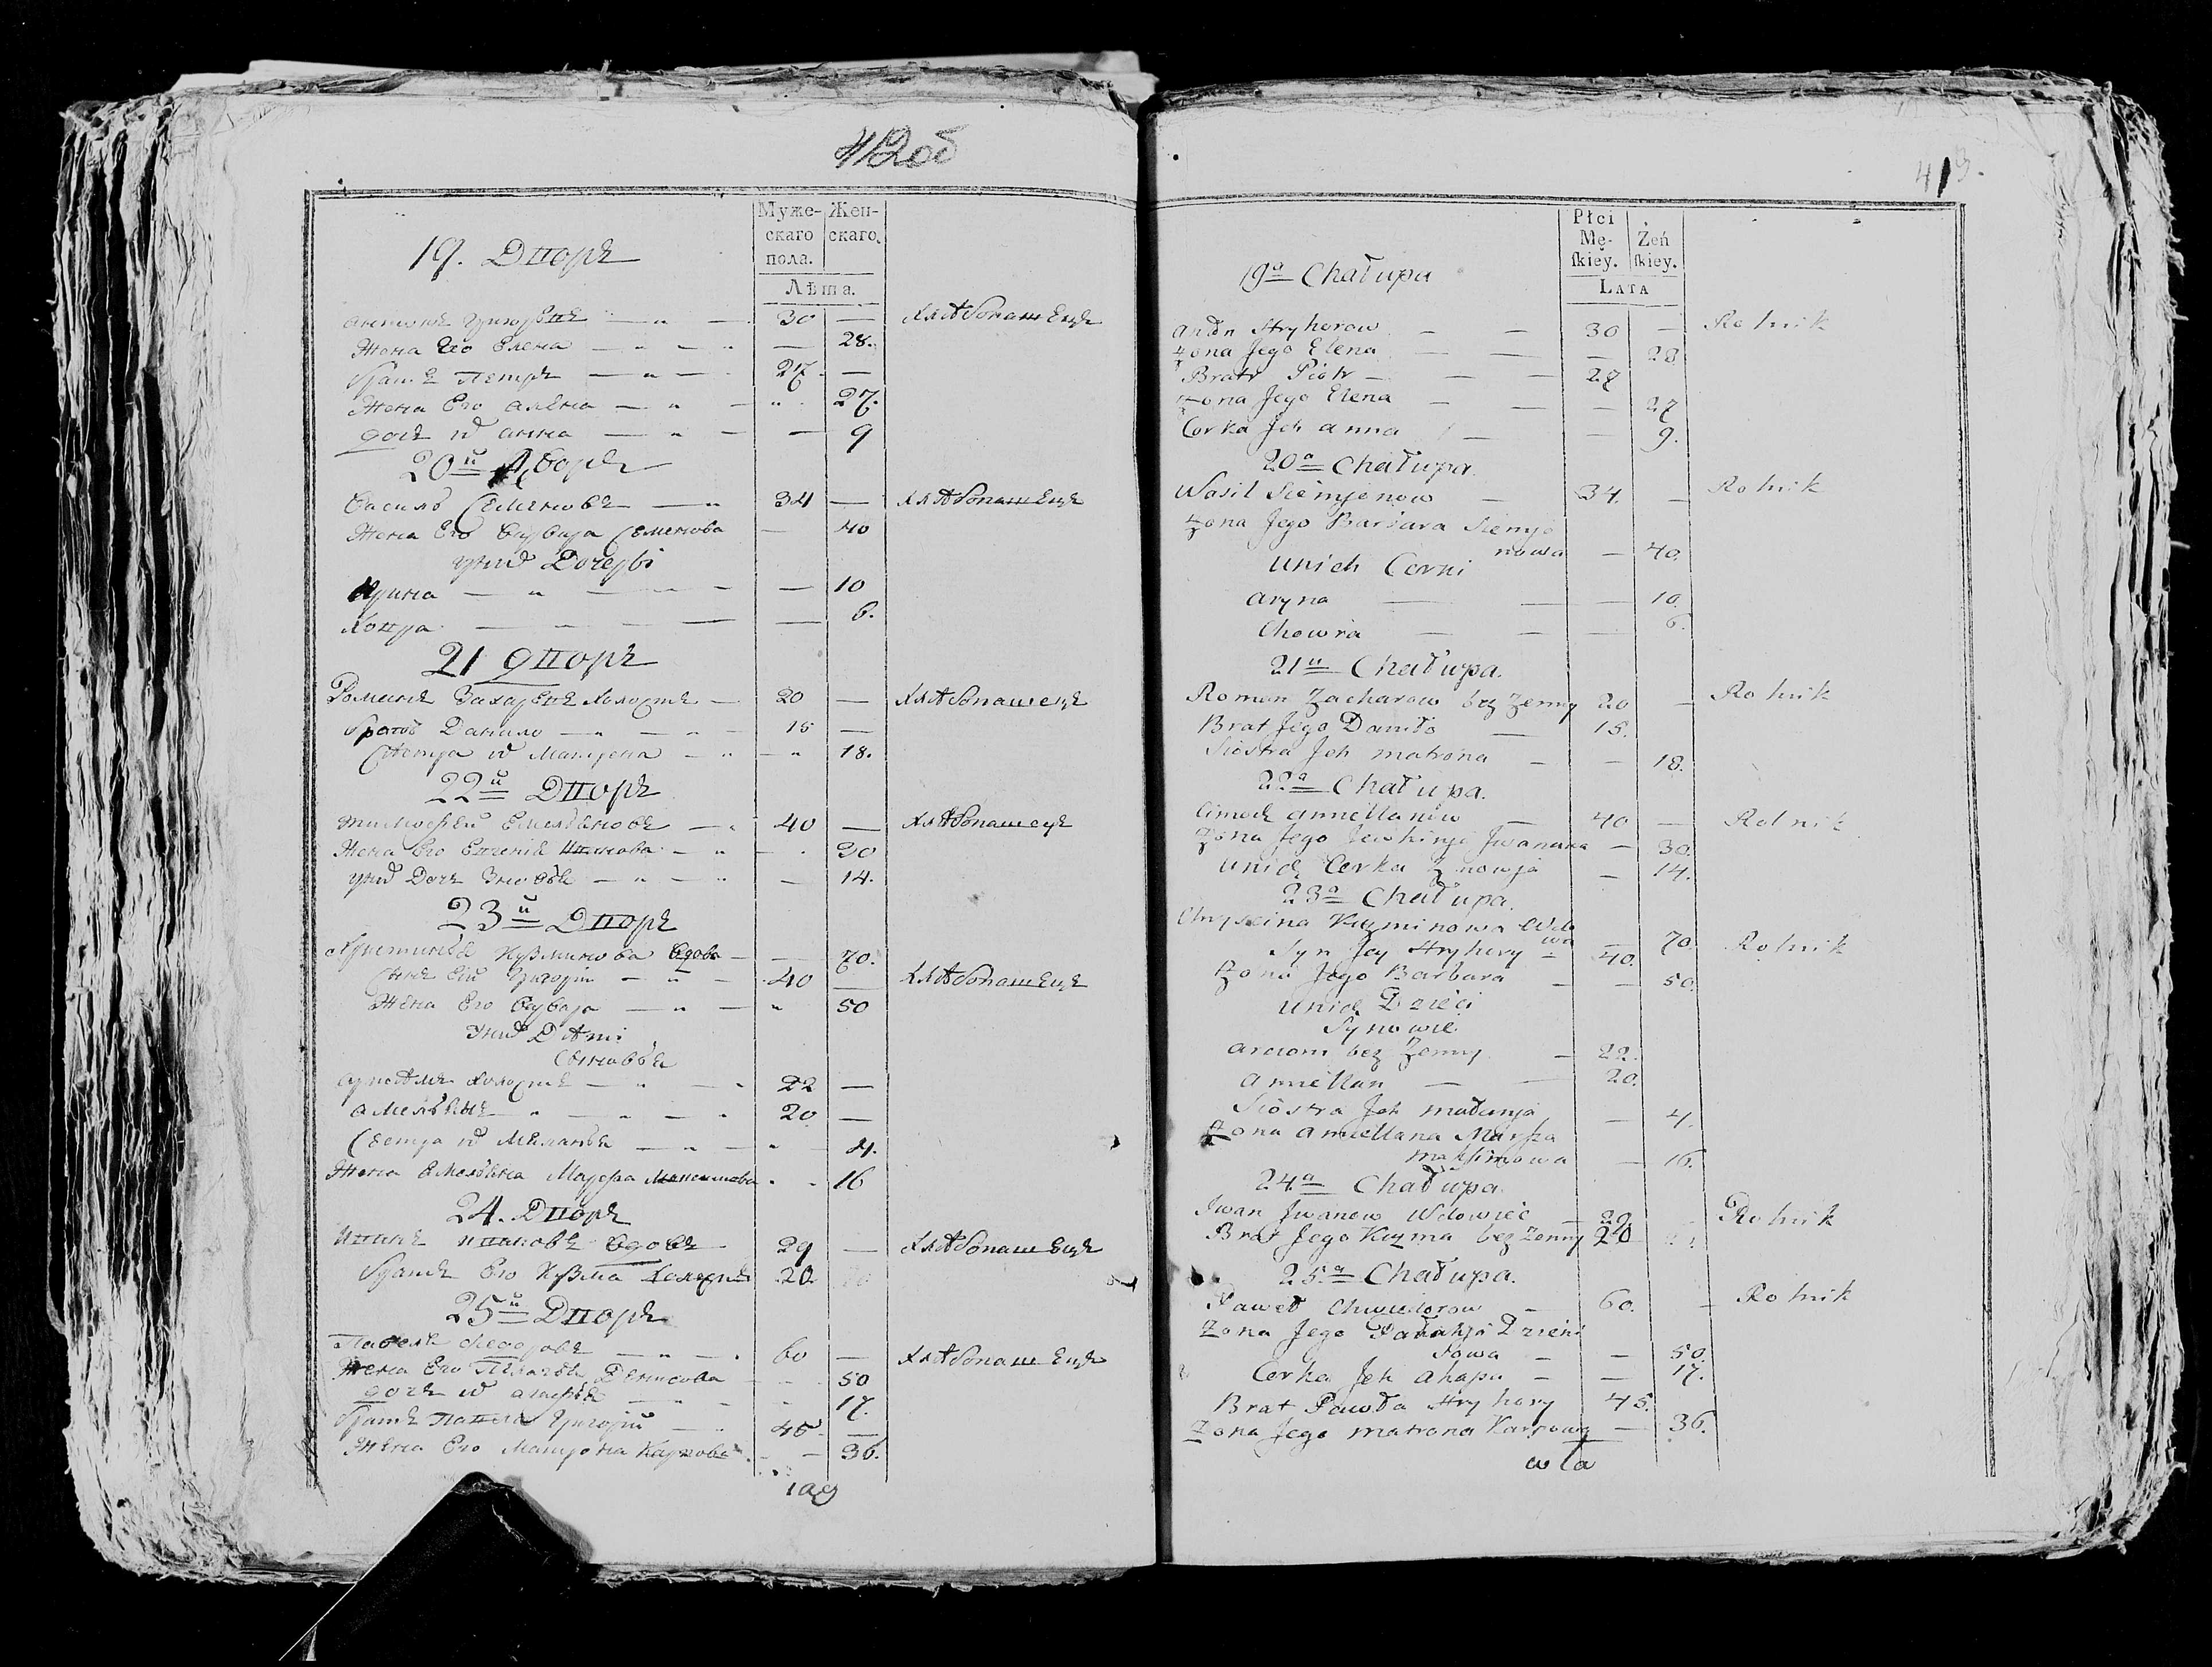 412об
Муже-
скаго
пола.
Жен-
скаго.
Лѣта.
19. Дворъ
антонъ григорѣвъ — 30 — хлѣбопашецъ
Жена Его Елена — — 28.
братъ Петръ — 27 —
Жена Его алена — 27.
дочь ихъ анна — — 9
20й Дворъ
Василь Семеновъ — 34 — хлѣбопашецъ
Жена Его варвара Семенова — 40
у нихъ Дочерѣ
Арина — — 10
Ховра — — 6.
21 дворъ
Романъ Захарѣвъ холостъ — 20 — хлѣбопашецъ
братъ Данило — 15 —
Сестра ихъ Матрена — 18.
22й Дворъ
тимофей Емельяновъ — 40 — хлѣбопашецъ
Жена Его Ивановa — 30
у нихъ Дочь — 14.
23й Дворъ
Кузминова вдова — 70.
Сынъ Ей Григорiй — 40 — хлѣбопашецъ
Жена Его варвара — 50
у нихъ Дѣти
Сыновья
холостъ — 22 —
амельянъ — 20 —
Сестра ихъ — 4.
Жена Емельяна Марфа Максимова 16
24. Дворъ
Иванъ Ивановъ вдовъ 29 — хлѣбопашецъ
братъ Его Кузма холостъ 20
25й Дворъ
Павелъ Федоровъ — 60 — хлѣбопашецъ
Жена Его Денисова — 50
дочь ихъ — 17.
братъ Павела Григорiй 45 —
Жена Его Матрона Карпова — 36.
413.
Płci
Mę-
ſkiey.
Żeń
ſkiey.
Lata
19a Chałupa
Antón Hryhorow — — 30 — Rolnik
Żona Jego Elena — — — 28
Bratr Piotr — — — 27
Żona Jego Elena — — — 27
Corka Jch anna — — 9.
20a Chałupa.
Wasil Siemjenow — 34. — Rolnik
Żona Jego Barbara Siemjo
nowa — 40.
Unich Corki
Aryna — — — 10.
Chowra — — — 6.
21a Chałupa.
Roman Zacharow bez Żenny 20 — Rolnik
Brat Jego Daniło — 15.
Siostra Jch matrona — — 18.
22a Chałupa.
Cimoch amiellanow — 40 — Rolnik
Żona Jego Jewhinja Jwanowa — 30.
Unich Corka Zinowja — 14.
23a Chałupa.
Chryscina Kuzminowa Wdo
wa — 70. Rolnik
Syn Jey Hryhory — 40.
Żona Jego Barbara — — 50.
Unich Dzieci
Synowie
Arciom bez Żenny — 22.
Amiellan — — 20.
Siostra Jch małanja — 4.
Żona amiellana Marfza
Maksimowa — 16.
24a Chałupa.
Jwan Jwanow Wdowiec — 29. Rolnik
Brat Jego Kuzma bez Żenny 20
25.a Chałupa.
Paweł Chwiedorow — 60. — Rolnik
Żona Jego Pałahja Dzieni
sowa — — 50.
Corka Jch Ahapa — — 17.
Brat Pawła Hryhory 45.
Żona Jego matrona Karpowa — 36.